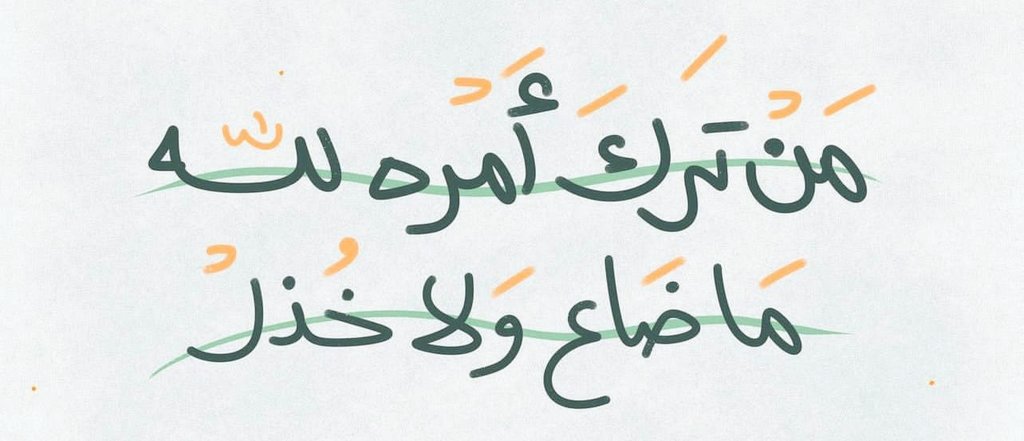 مَنْ تَركَ أَمْره للّه
مَا ضَاع وَلا خُذلْ